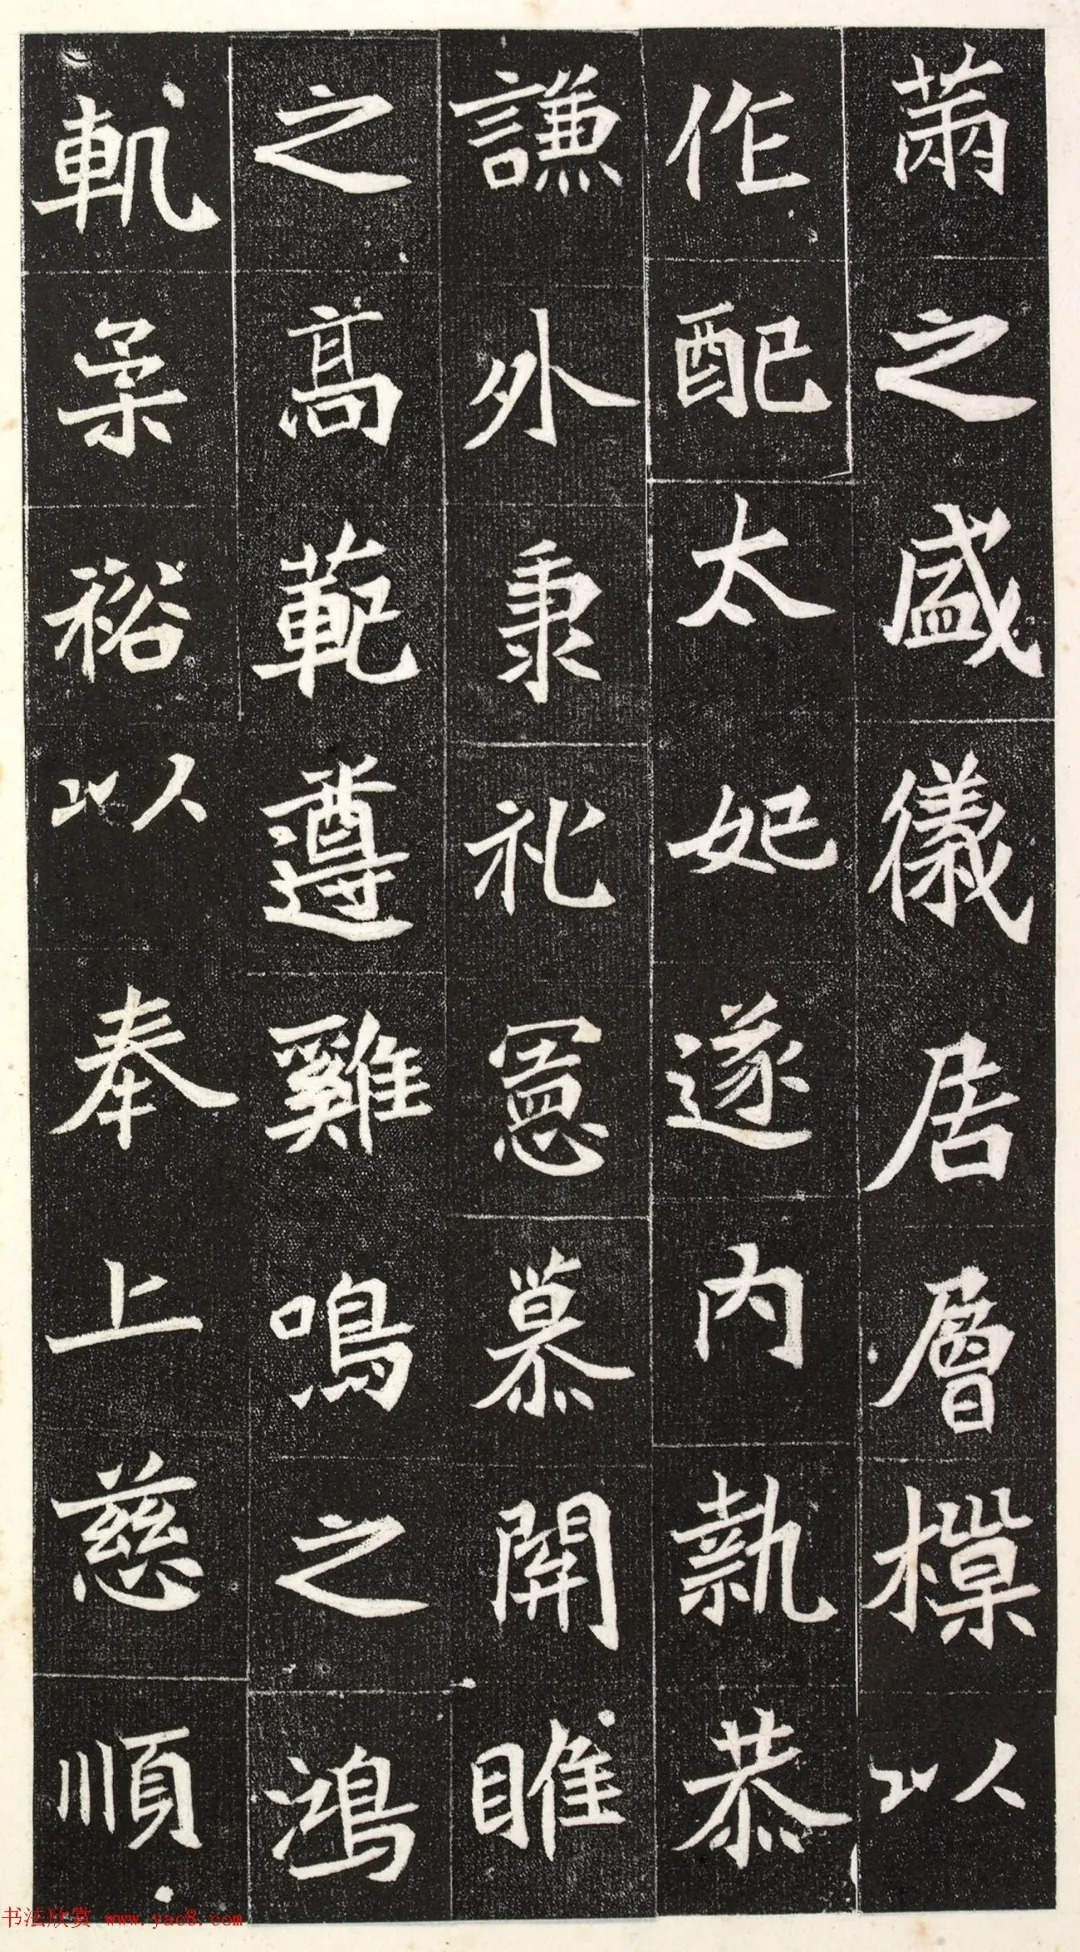 之盛儀居層以
作配太妃遂内執恭
謙外秉礼憲慕關睢
之髙範遵雞鳴之鴻
軌柔裕以奉上慈順
书法欣赏 www.yac8.com